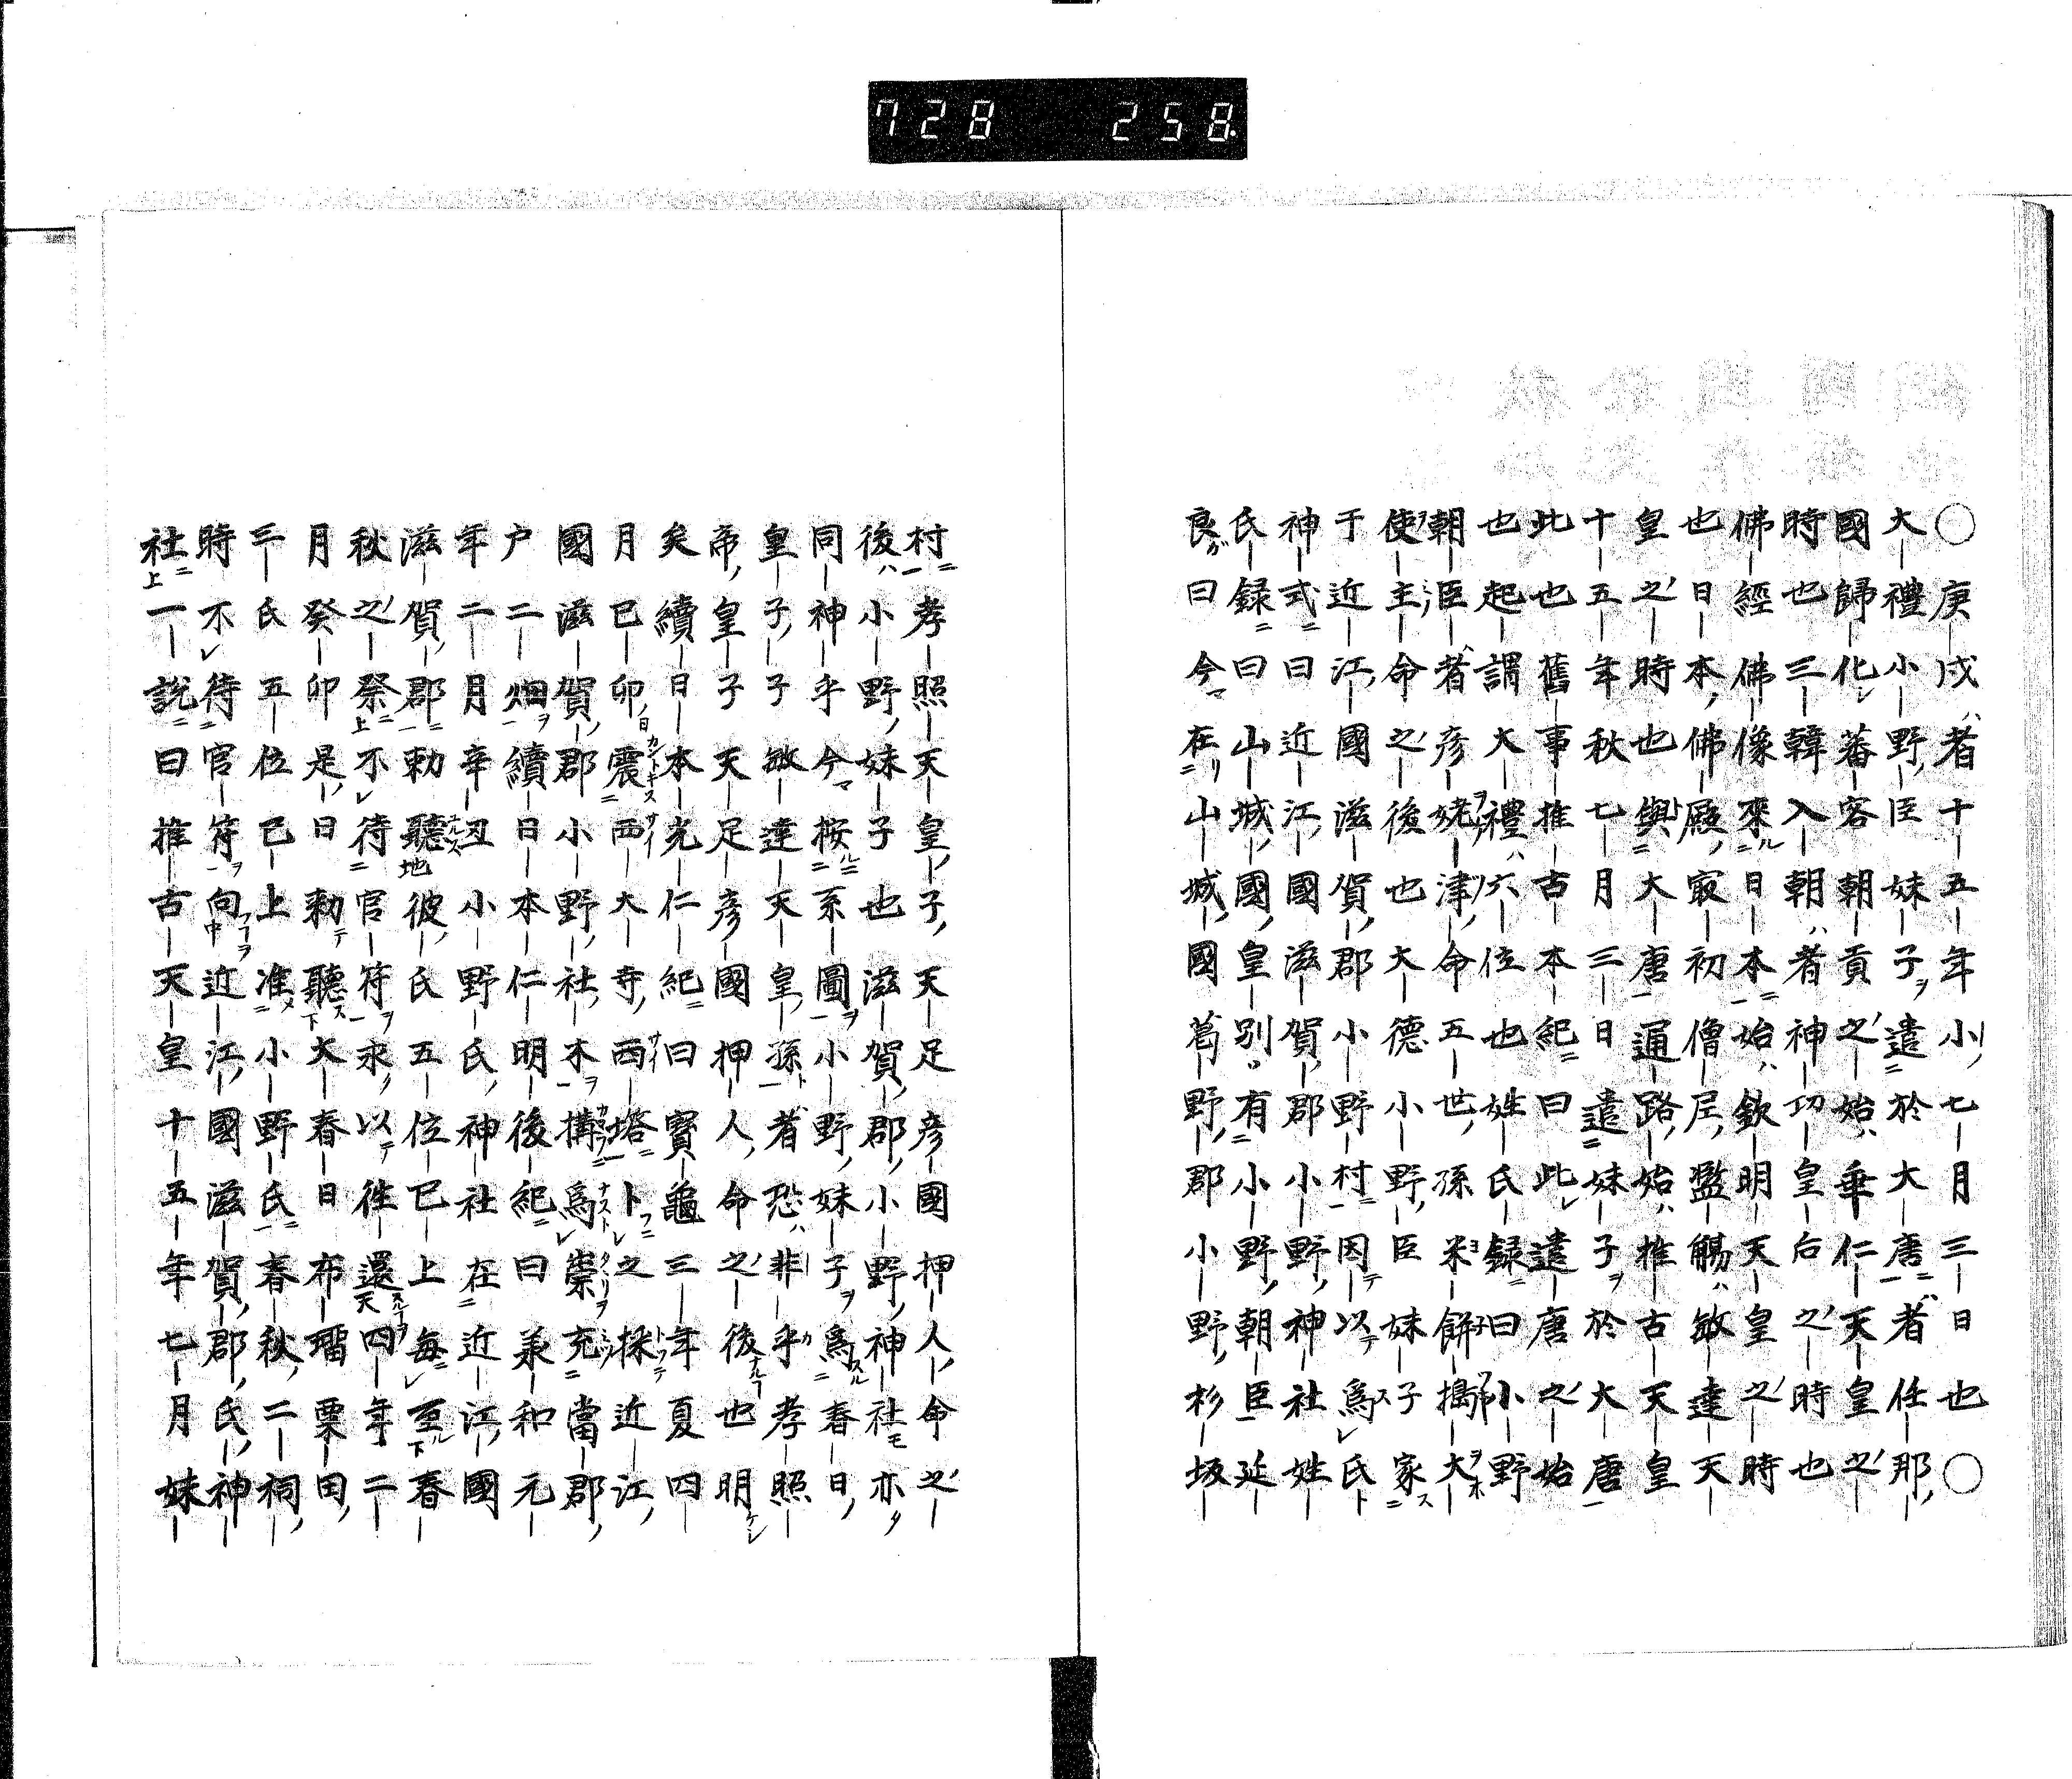 728 258
○庚戌者十五年小七月三日也○
大禮小野臣妹子遣於大唐者任那
國歸化蕃客朝貢之始垂仁天皇之
時也三韓入朝者神功皇后之時也
佛經佛像來日本始欽明天皇之時
也日本佛殿冣初僧尼濫觴敏達天
皇之時也與大唐通路始推古天皇
十五年秋七月三日遣妹子於大唐
此也舊事推古本紀曰此遣唐之始
也起謂大禮六位也姓氏録曰小野
朝臣者彦姥津命五世孫米餅搗大
使主命之後也大德小野臣妹子家
于近江國滋賀郡小野村因以爲氏
神式曰近江國滋賀郡小野神社姓
氏録曰山城國皇別有小野朝臣延
良曰今在山城國葛野郡小野杉坂
村孝照天皇子天足彦國押人命之
後小野妹子也滋賀郡小野神社亦
同神乎今按系圖小野妹子爲春日
皇子子敏達天皇孫者恐非乎孝照
帝皇子子天足彦國押人命之後也明
矣續日本光仁紀曰寶龜三年夏四
月己卯震西大寺西塔卜之採近江
國滋賀郡小野社木搆爲祟充當郡
户二烟續日本仁明後紀曰兼和元
年二月辛丑小野氏神社在近江國
滋賀郡勅聽彼氏五位已上每至春
秋之祭不待官符永以徃還四年二
月癸卯是日勅聽大春日布瑠粟田
三氏五位已上准小野氏春秋二祠
時不待官符向近江國滋賀郡氏神
社一說曰推古天皇十五年七月妹